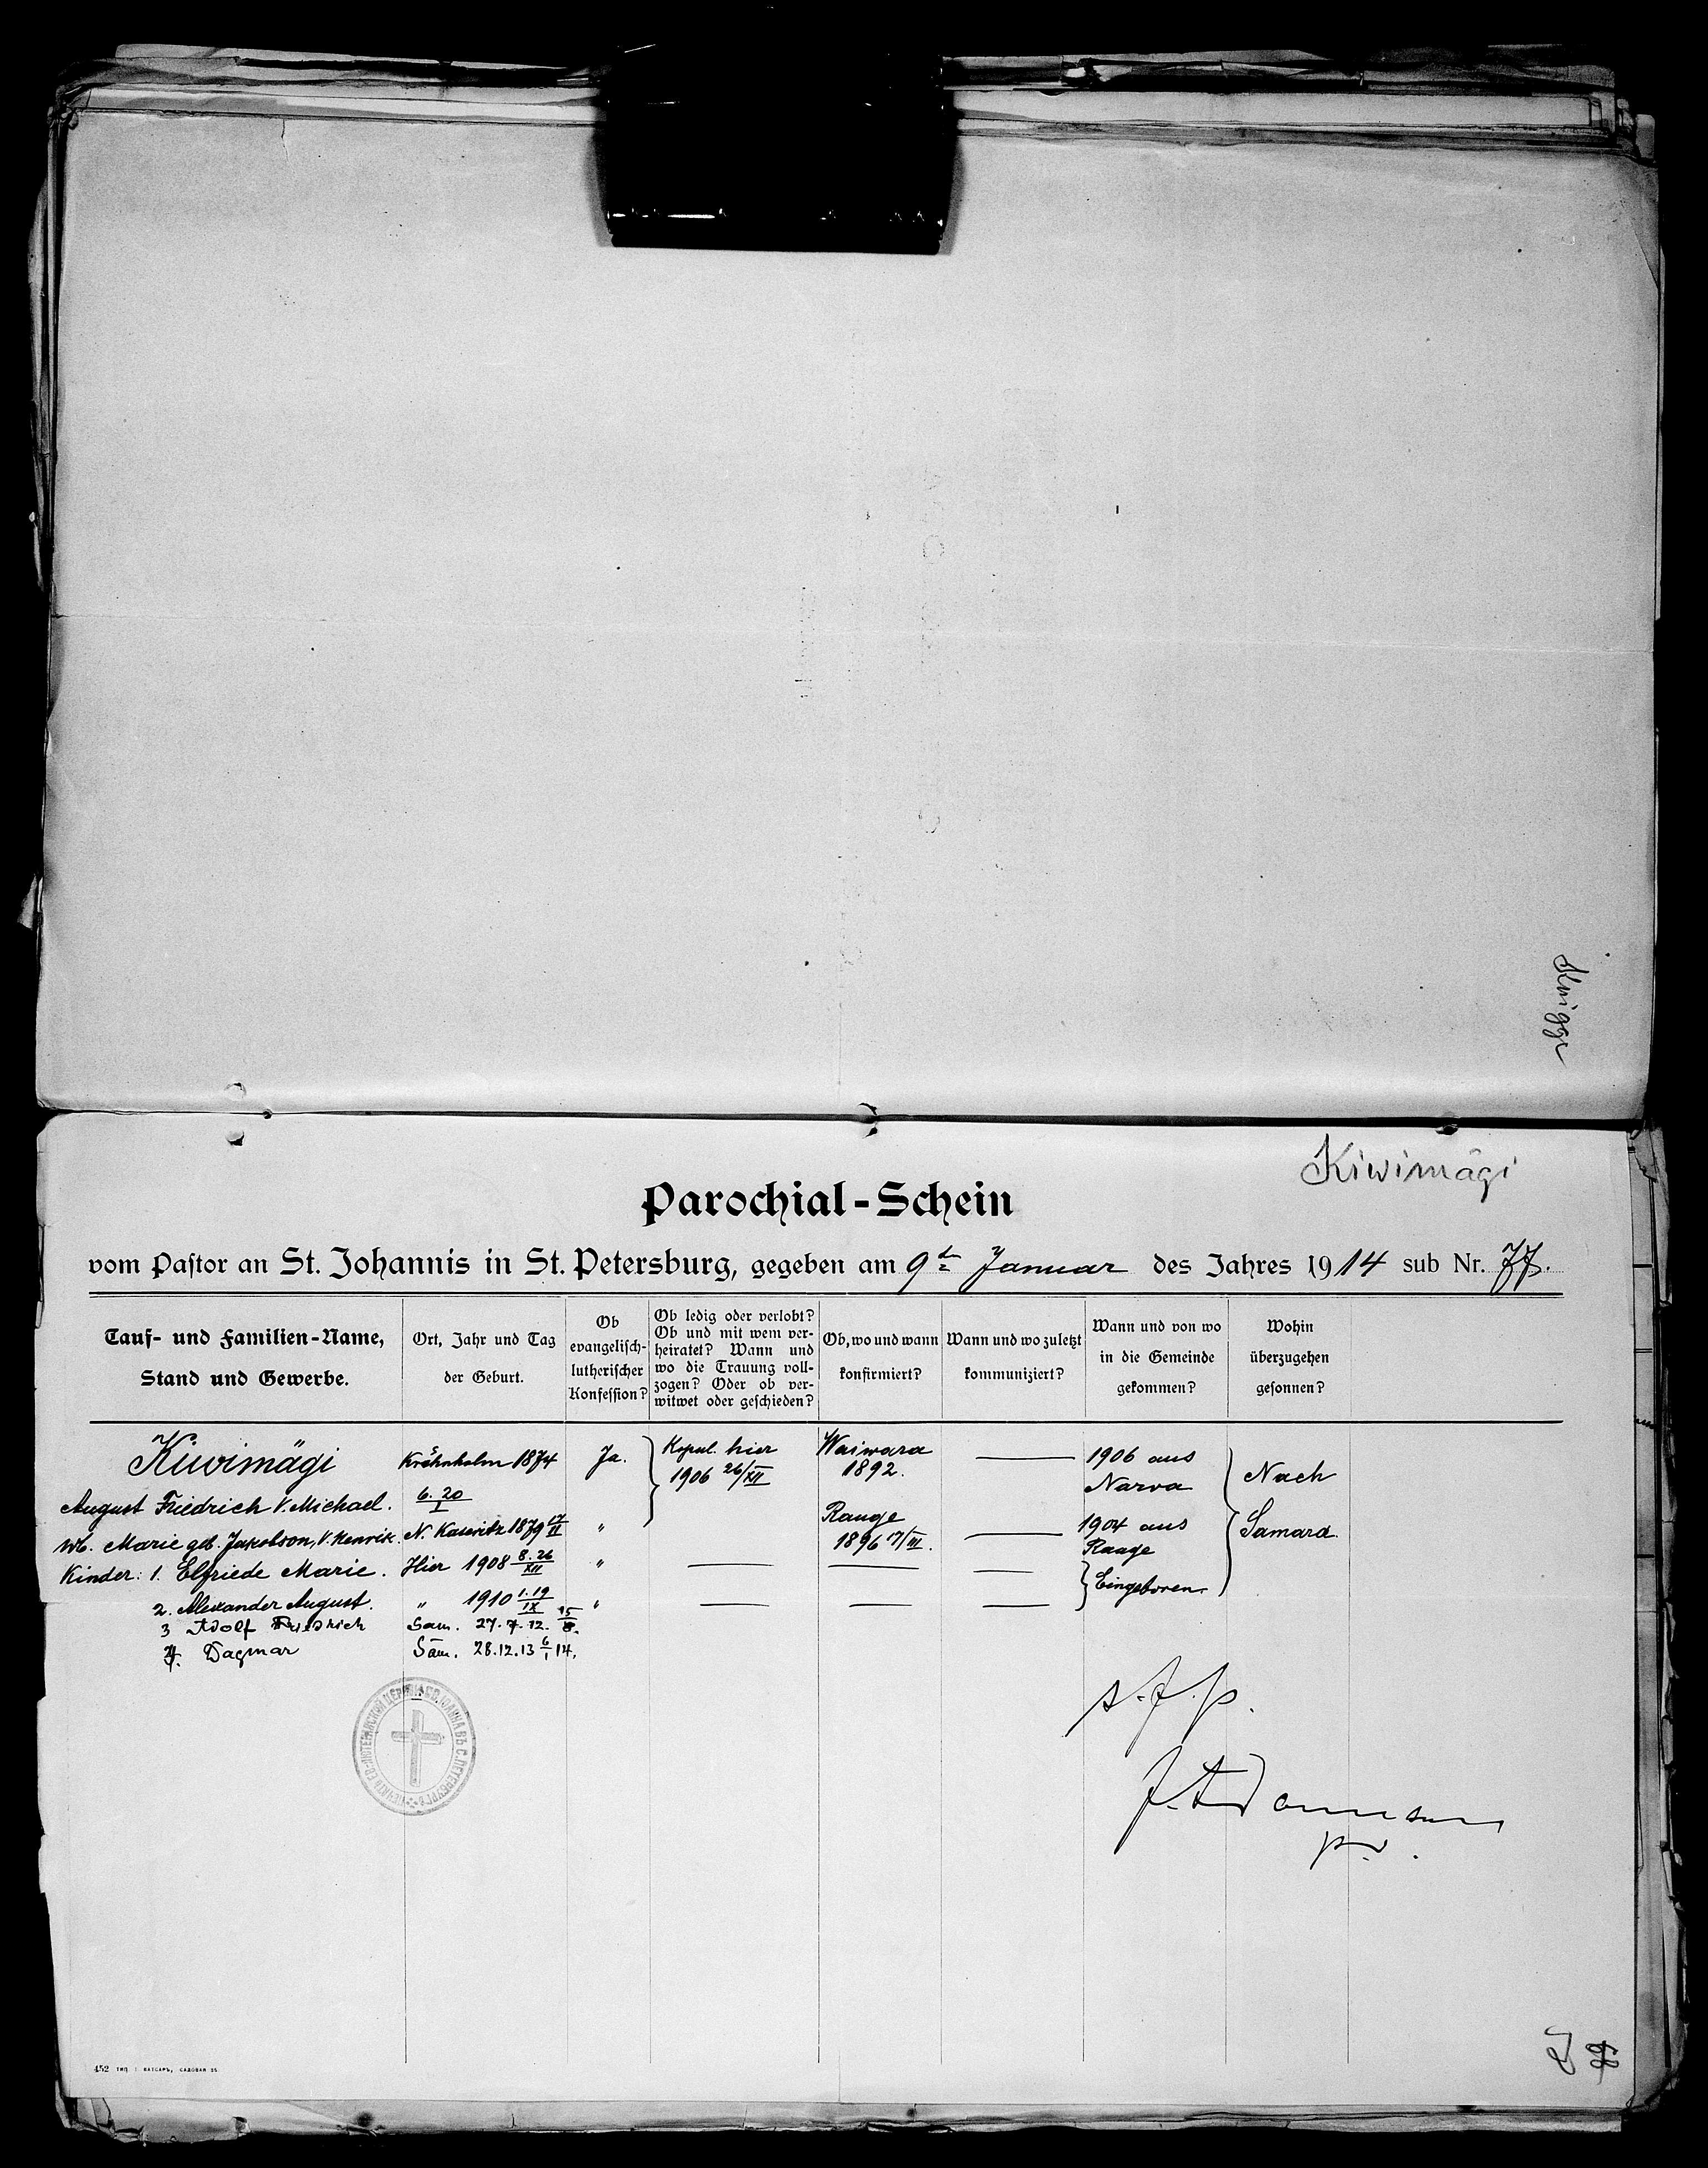 Knigge
Kiwimägi
Parochial-Schein
vom Pastor an St. Johannis in St. Petersburg, gegeben am 9t Januar des Jahres 1914 sub Nr. 77.
Tauf- und Familien-Name, Stand und Gewerbe.
Ort, Jahr und Tag der Geburt.
Ob evangelisch-lutherischer Konfession?
Ob ledig oder verlobt? Ob und mit wem verheiratet? Wann und wo die Trauung vollzogen? Oder ob verwitwet oder geschieden?
Ob, wo und wann konfirmiert?
Wann und wo zuletzt kommuniziert?
Wann und von wo in die Gemeinde gekommen?
Wohin überzugehen gesonnen?
Kiwimägi Krähnholm 1874 Ja. Kopul. hier 1906 26/XII Waiwara 1892. — 1906 aus Narva Nach Samara
August Friedrich V. Michael. 6. 20/I
Wb. Marie geb. Jakobson, V. Henrik. N. Kaseritz 1879 17/II " Rauge 1896 17/III. — 1904 aus Rauge
Kinder: 1. Elfriede Marie. Hier 1908 8. 26/XII " — — — Eingeboren
2. Alexander August. " 1910 1. 19/IX " — — —
3 Adolf Friedrich Sam. 27. 7. 12. 15/8.
4. Dagmar Sam. 28.12.13 6/1 14.
ЕВ.-ЛЮТЕРАНСКОЙ ЦЕРКВИ СВ. ІОАННА ВЪ С. ПЕТЕРБУРГѢ
s. f. p.
p.
452 ТИП.